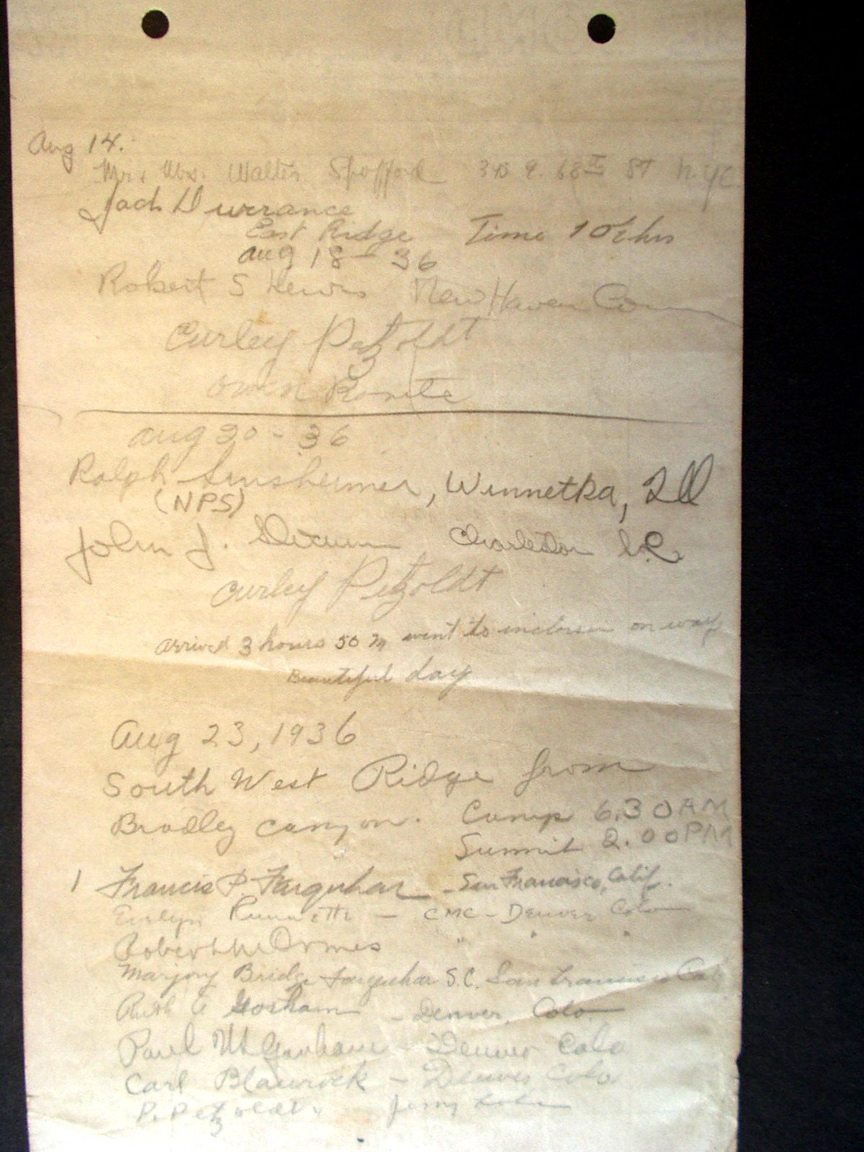 Aug 14.
Walter Spofford 68th ST N.Y.C
Jack Durrance
East Ridge Time 10½ hrs
Aug 18 - 36
Robert S New Haven Conn
Curley Petzoldt
Owen Route
Aug 20 - 36
Ralph Sinsheimer, Winnetka, Ill
(NPS)
John J. Charleston
Curley Petzoldt
arrived 3 hours 50 m went to on way
Beautiful day
Aug 23, 1936
South West Ridge from
Bradley canyon. Camp 6.30 AM
Summit 2.00 PM
1 Francis P Farquhar - San Francisco, Calif.
Evelyn Runnette - CMC - Denver Colo
Robert M Ormes " " "
Marjory Bridge Farquhar S.C. San Francisco Cal
Ruth A Gorham - Denver, Colo.
Paul W Gorham - Denver Colo
Carl Blaurock - Denver Colo
P. Petzoldt